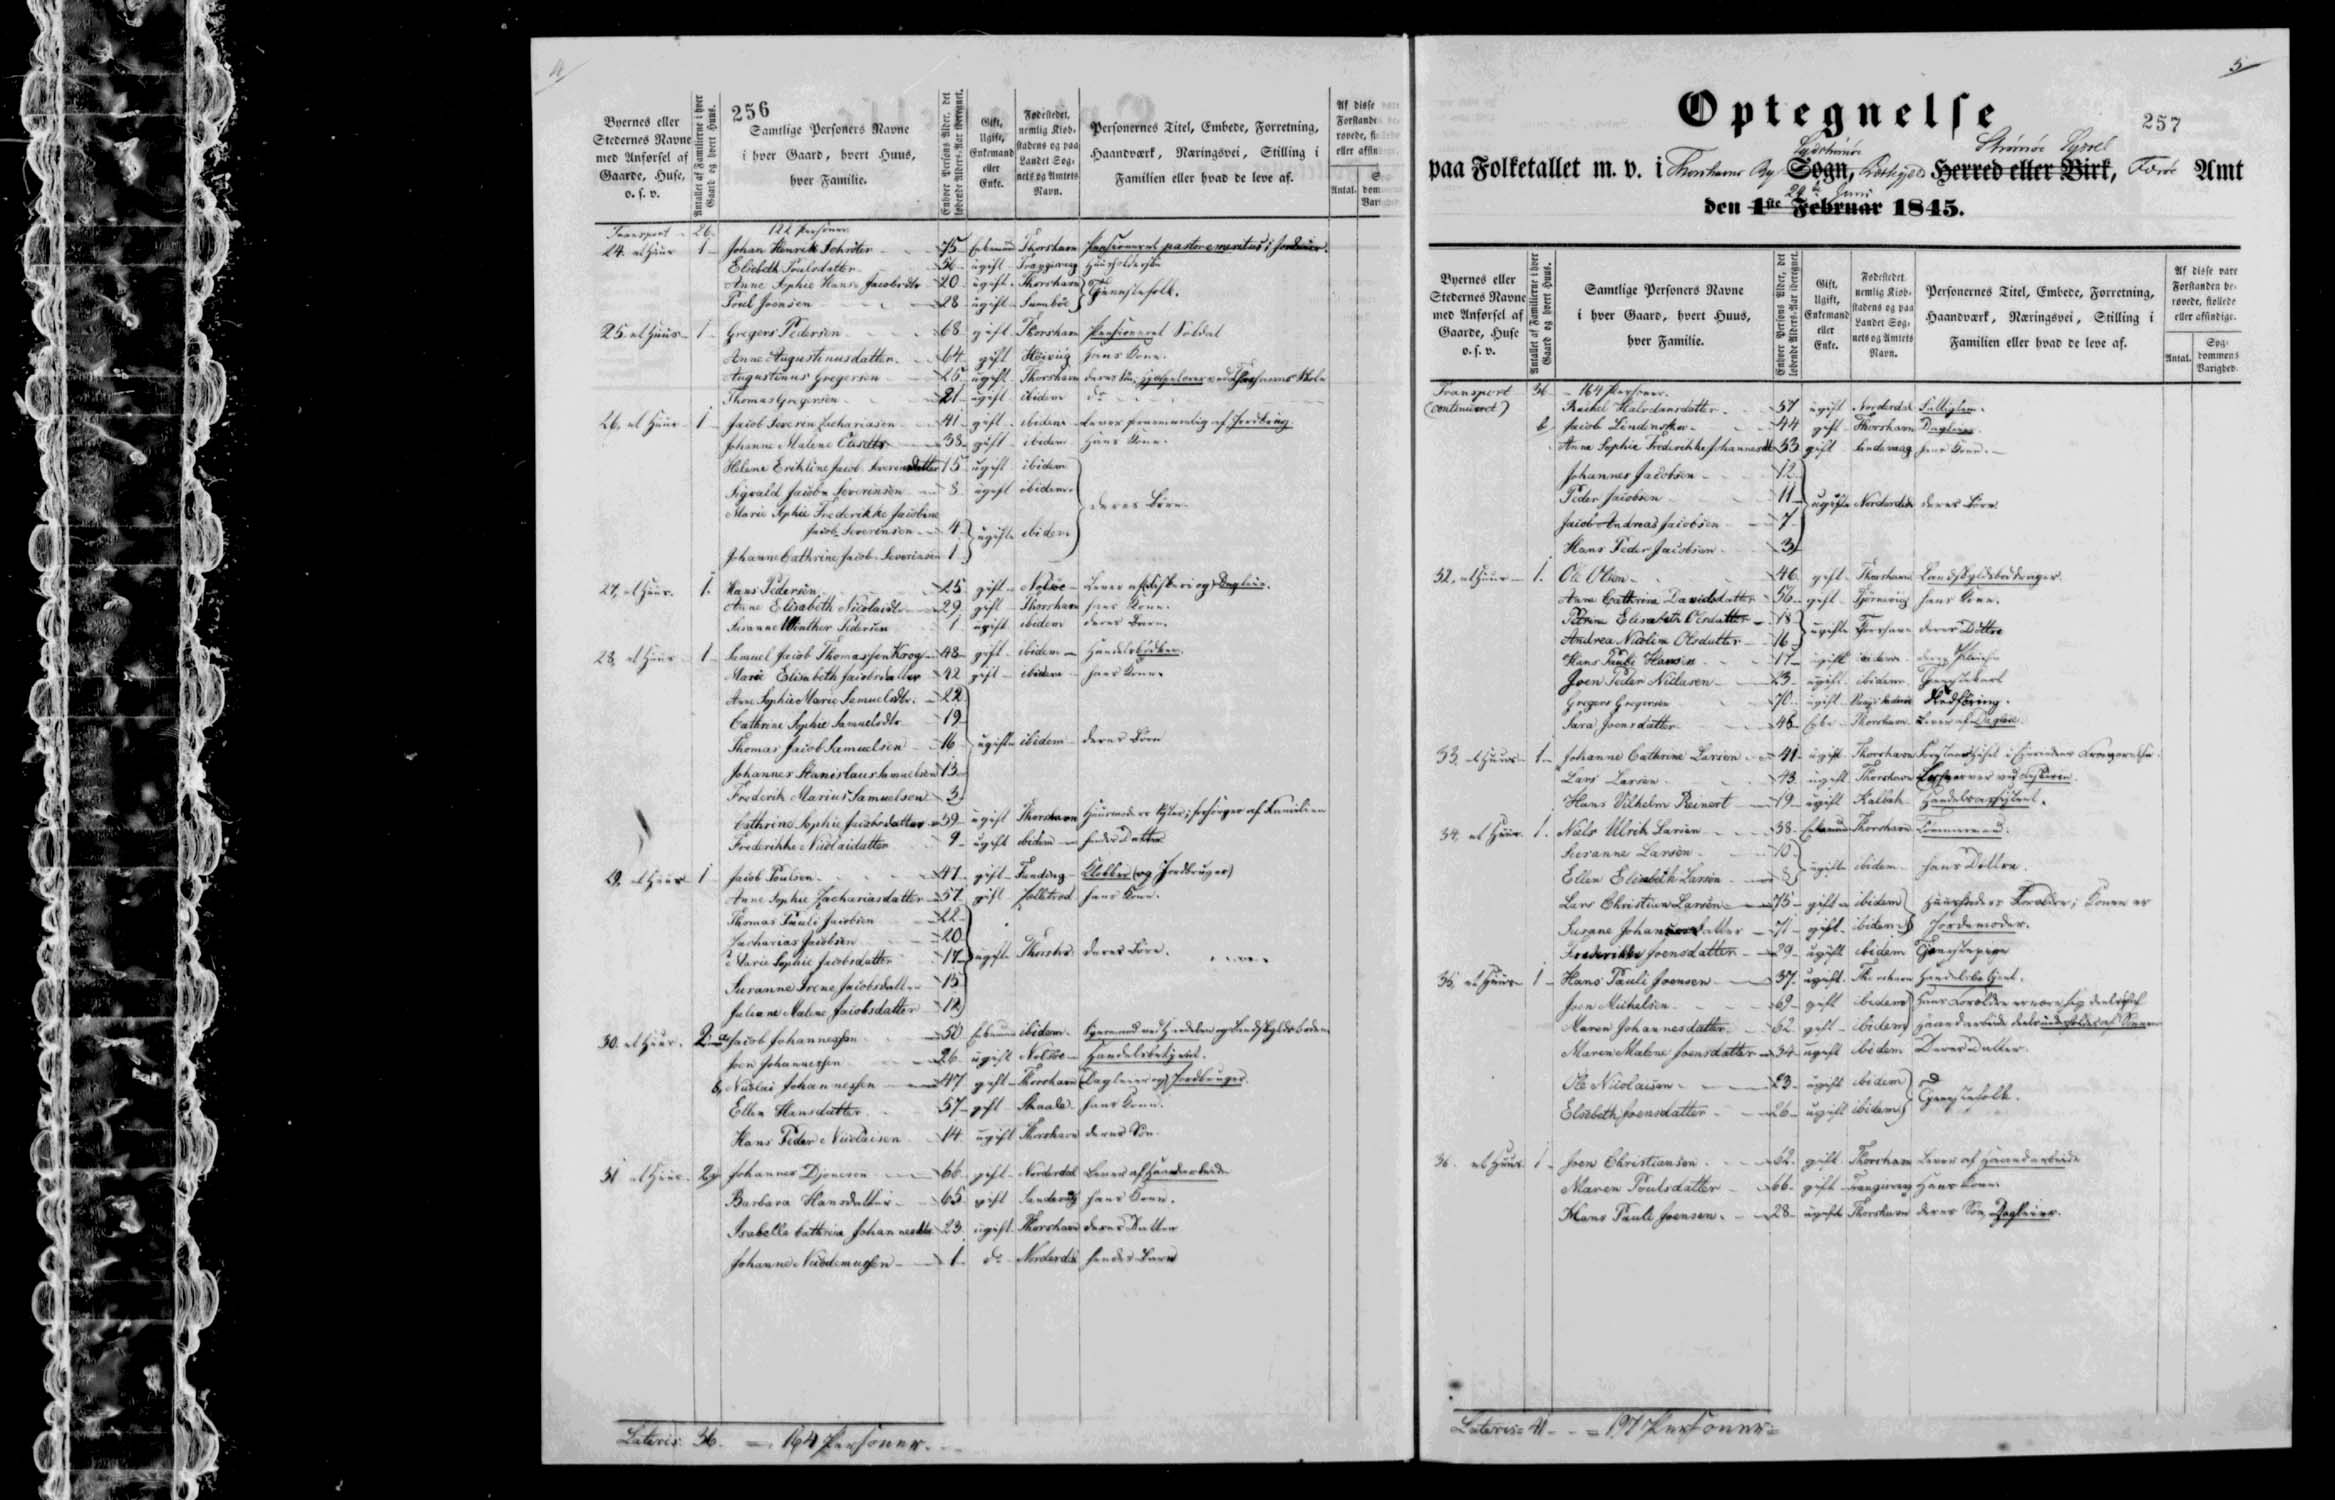 4
256
Byernes eller
Stedernes Navne
med Anførsel af
Gaarde, Huse,
o. s. v.
Antallet af Familierne i hver
Gaard og hvert Huus.
Samtlige Personers Navne
i hver Gaard, hvert Huus,
hver Familie.
Enhver Persons Alder, det
løbende Alders-Aar iberegnet.
Gift,
Ugift,
Enkemand
eller
Enke.
Fødestedet,
nemlig Kiøb-
stadens og paa
Landet Sog-
nets og Amtets
Navn.
Personernes Titel, Embede, Forretning,
Haandværk, Næringsvei, Stilling i
Familien eller hvad de leve af.
Af disse
Forstande
røvede,
eller
Antal.
Transport 26. 122 Personer
24. et Huus 1 Johan Henrik Schrøter 75 Enkemand Thorshavn Pensioneret pastor emeritus;
Elisbeth Poulsdatter 56 ugift Huusholderske
Anne Sophie Hans Jacobsdtr 20 ugift Thorshavn Tjenestefolk.
Poul Joensen 28 ugift Sumbøe
25. et Huus 1 Gregers Pedersen 68 gift Thorshavn Pensioneret Soldat
Anne Augustinusdatter 64 gift Hans Kone.
Augustinus Gregersen 26 ugift Thorshavn deres Søn,
Thomas Gregersen 21 ugift ibidem do
26. et Huus 1 Jacob Severin Zachariasen 41 gift ibidem Lever fornemmelig af Jordbrug
Johanne Malene 38 gift ibidem Hans Kone.
Helene Erikline Jacob Severinsdatter 15 ugift ibidem
Sigvald Jacob Severinsen 8 ugift ibidem deres Børn
Marie Sophie Frederikke Jacobine
Jacob Severinsen 4 ugifte ibidem
Johanne Cathrine Jacob Severinsen 1
27. et Huus 1. Hans Pedersen 25 gift Nolsøe Lever af Fiskeri og Dagleie.
Anne Elisabeth Nicolaidtr 29 gift Thorshavn hans Kone.
Susanne Winther Pedersen 1 ugift ibidem deres Barn.
28. et Huus 1 Samuel Jacob Thomassen Krog 48 gift ibidem
Marie Elisabeth Jacobsdatter 42 gift ibidem hans Kone
Ane Sophie Marie Samuelsdtr. 22
Cathrine Sophie Samuelsdtr 19
Thomas Jacob Samuelsen 16 ugifte ibidem deres Børn
Johannes Stanislaus Samuelsen 13
Frederik Marius Samuelsen 3
Cathrine Sophie Jacobsdatter 39 ugift Thorshavn Huusmoders Søster; forsørges af Familien
Frederikke Nicolaidatter 9 ugift ibidem hendes Datter
29. et Huus 1 Jacob Poulsen 47 gift Klokker (og Jordbruger)
Anne Sophie Zachariasdatter 57 gift hans Kone.
Thomas Pauli Jacobsen 22
Zacharias Jacobsen 20
Marie Sophie Jacobsdatter 17 ugifte Thorshvn deres Børn.
Susanne Irene Jacobsdatter 15
Juliane Malene Jacobsdatter 12
30. et Huus. 2 a Jacob Johannessen 50 Enkemand ibidem
Joen Johannessen 26 ugift Nolsøe Handelsbetjent.
b, Nicolai Johannessen 47 gift Thorshavn (Dagleier og) Jordbruger.
Ellen Hansdatter 57 gift Skaale hans Kone.
Hans Peder Nicolaisen 14 ugift Thorshavn deres Søn
31 et Huus 2 Johannes Djonesen 66 gift Norderdal Lever af Haandarbeide
Barbara Hansdatter 65 gift hans Kone.
Isabelle Cathrine Johannesdtr 23 ugift Thorshavn deres Datter
Johanne Nicodemussen 1 do hendes Barn
Lateris 36. = 164 Personer.
5
257
Optegnelse
Sydstrømøe Strømøe Syssel
paa Folketallet m. v. i Thorshavns By Sogn, Herred eller Birk, Færøe Amt
den 1ste Februar 1845.
Juni
Byernes eller
Stedernes Navne
med Anførsel af
Gaarde, Huse
o. s. v.
Antallet af Familierne i hver
Gaard og hvert Huus.
Samtlige Personers Navne
i hver Gaard, hvert Huus,
hver Familie.
Enhver Persons Alder, det
løbende Alders-Aar iberegnet.
Gift,
Ugift,
Enkemand
eller
Enke.
Fødestedet
nemlig Kiøb-
stadens og paa
Landet Sog-
nets og Amtets
Navn.
Personernes Titel, Embede, Forretning,
Haandværk, Næringsvei, Stilling i
Familien eller hvad de leve af.
Af disse vare
Forstanden be-
røvede, fiollede
eller afsindige.
Antal.
Syg-
dommens
Varighed.
Transport 36 164 Personer.
(continueret) Rachel Halvdansdatter 57 ugift Norderdal Fattiglem.
b Jacob Lindenskov 44 gift Thorshavn Dagleier.
Anne Sophie Frederikke Johannesdtr 33 gift Sandevaag hans Kone.
Johannes Jacobsen 12
Peder Jacobsen 11 ugifte deres Børn.
Jacob Andreas Jacobsen 7
Hans Peder Jacobsen 3
32. et Huus 1. Ole Olsen 46 gift Thorshavn
Anne Cathrine Davidsdatter 56 gift hans Kone.
Petrine Elisabeth Olsdatter 18 ugifte Thorshavn deres Døttre
Andrea Nicoline Olsdatter 16
Hans Pauli Hansen 17 ugift ibidem deres
Joen Peder Niclasen 23 ugift ibidem Tjenestekarl
Gregers Gregersen 70 ugift Nedføring.
Sara Joensdatter 46 Enke Thorshavn Lever af Dagleie.
33. et Huus 1 Johanne Cathrine Larsen 41 ugift Thorshavn
Lars Larsen 43 ugift Thorshavn
Hans Vilhelm Reinert 19 ugift Kalbak Handelsassistent.
34. et Huus. 1. Niels Ulrik Larsen 38 Enkemand Thorshavn Tømmermand.
Susanne Larsen 10 ugifte ibidem hans Døttre.
Ellen Elisabeth Larsen 8
Lars Christian Larsen 75 gift ibidem Huusfaders Forældre; Konen er
Susane Johannesdatter 71 gift ibidem Jordemoder.
Frederikke Joensdatter 29 ugift ibidem Tjenestepige
35. et Huus 1 Hans Pauli Joensen 37 ugift Thorshavn Handelsbetjent.
Joen Michelsen 69 gift ibidem Hans Forældre ernære sig deels ved
Maren Johannesdatter 62 gift ibidem Haandarbeide deels underholdes af Sønnen
Maren Malene Joensdatter 34 ugift ibidem Deres Datter.
Ole Nicolaisen 23 ugift ibidem Tjenestefolk.
Elsebeth Joensdatter 26 ugift ibidem
36. et Huus 1 Joen Christiansen 62 gift Thorshavn Lever af Haandarbeide
Maren Poulsdatter 66 gift Hans Kone.
Hans Pauli Joensen. 28 ugift Thorshavn deres Søn, Dagleier.
Lateris = 41 = 197 Personer =